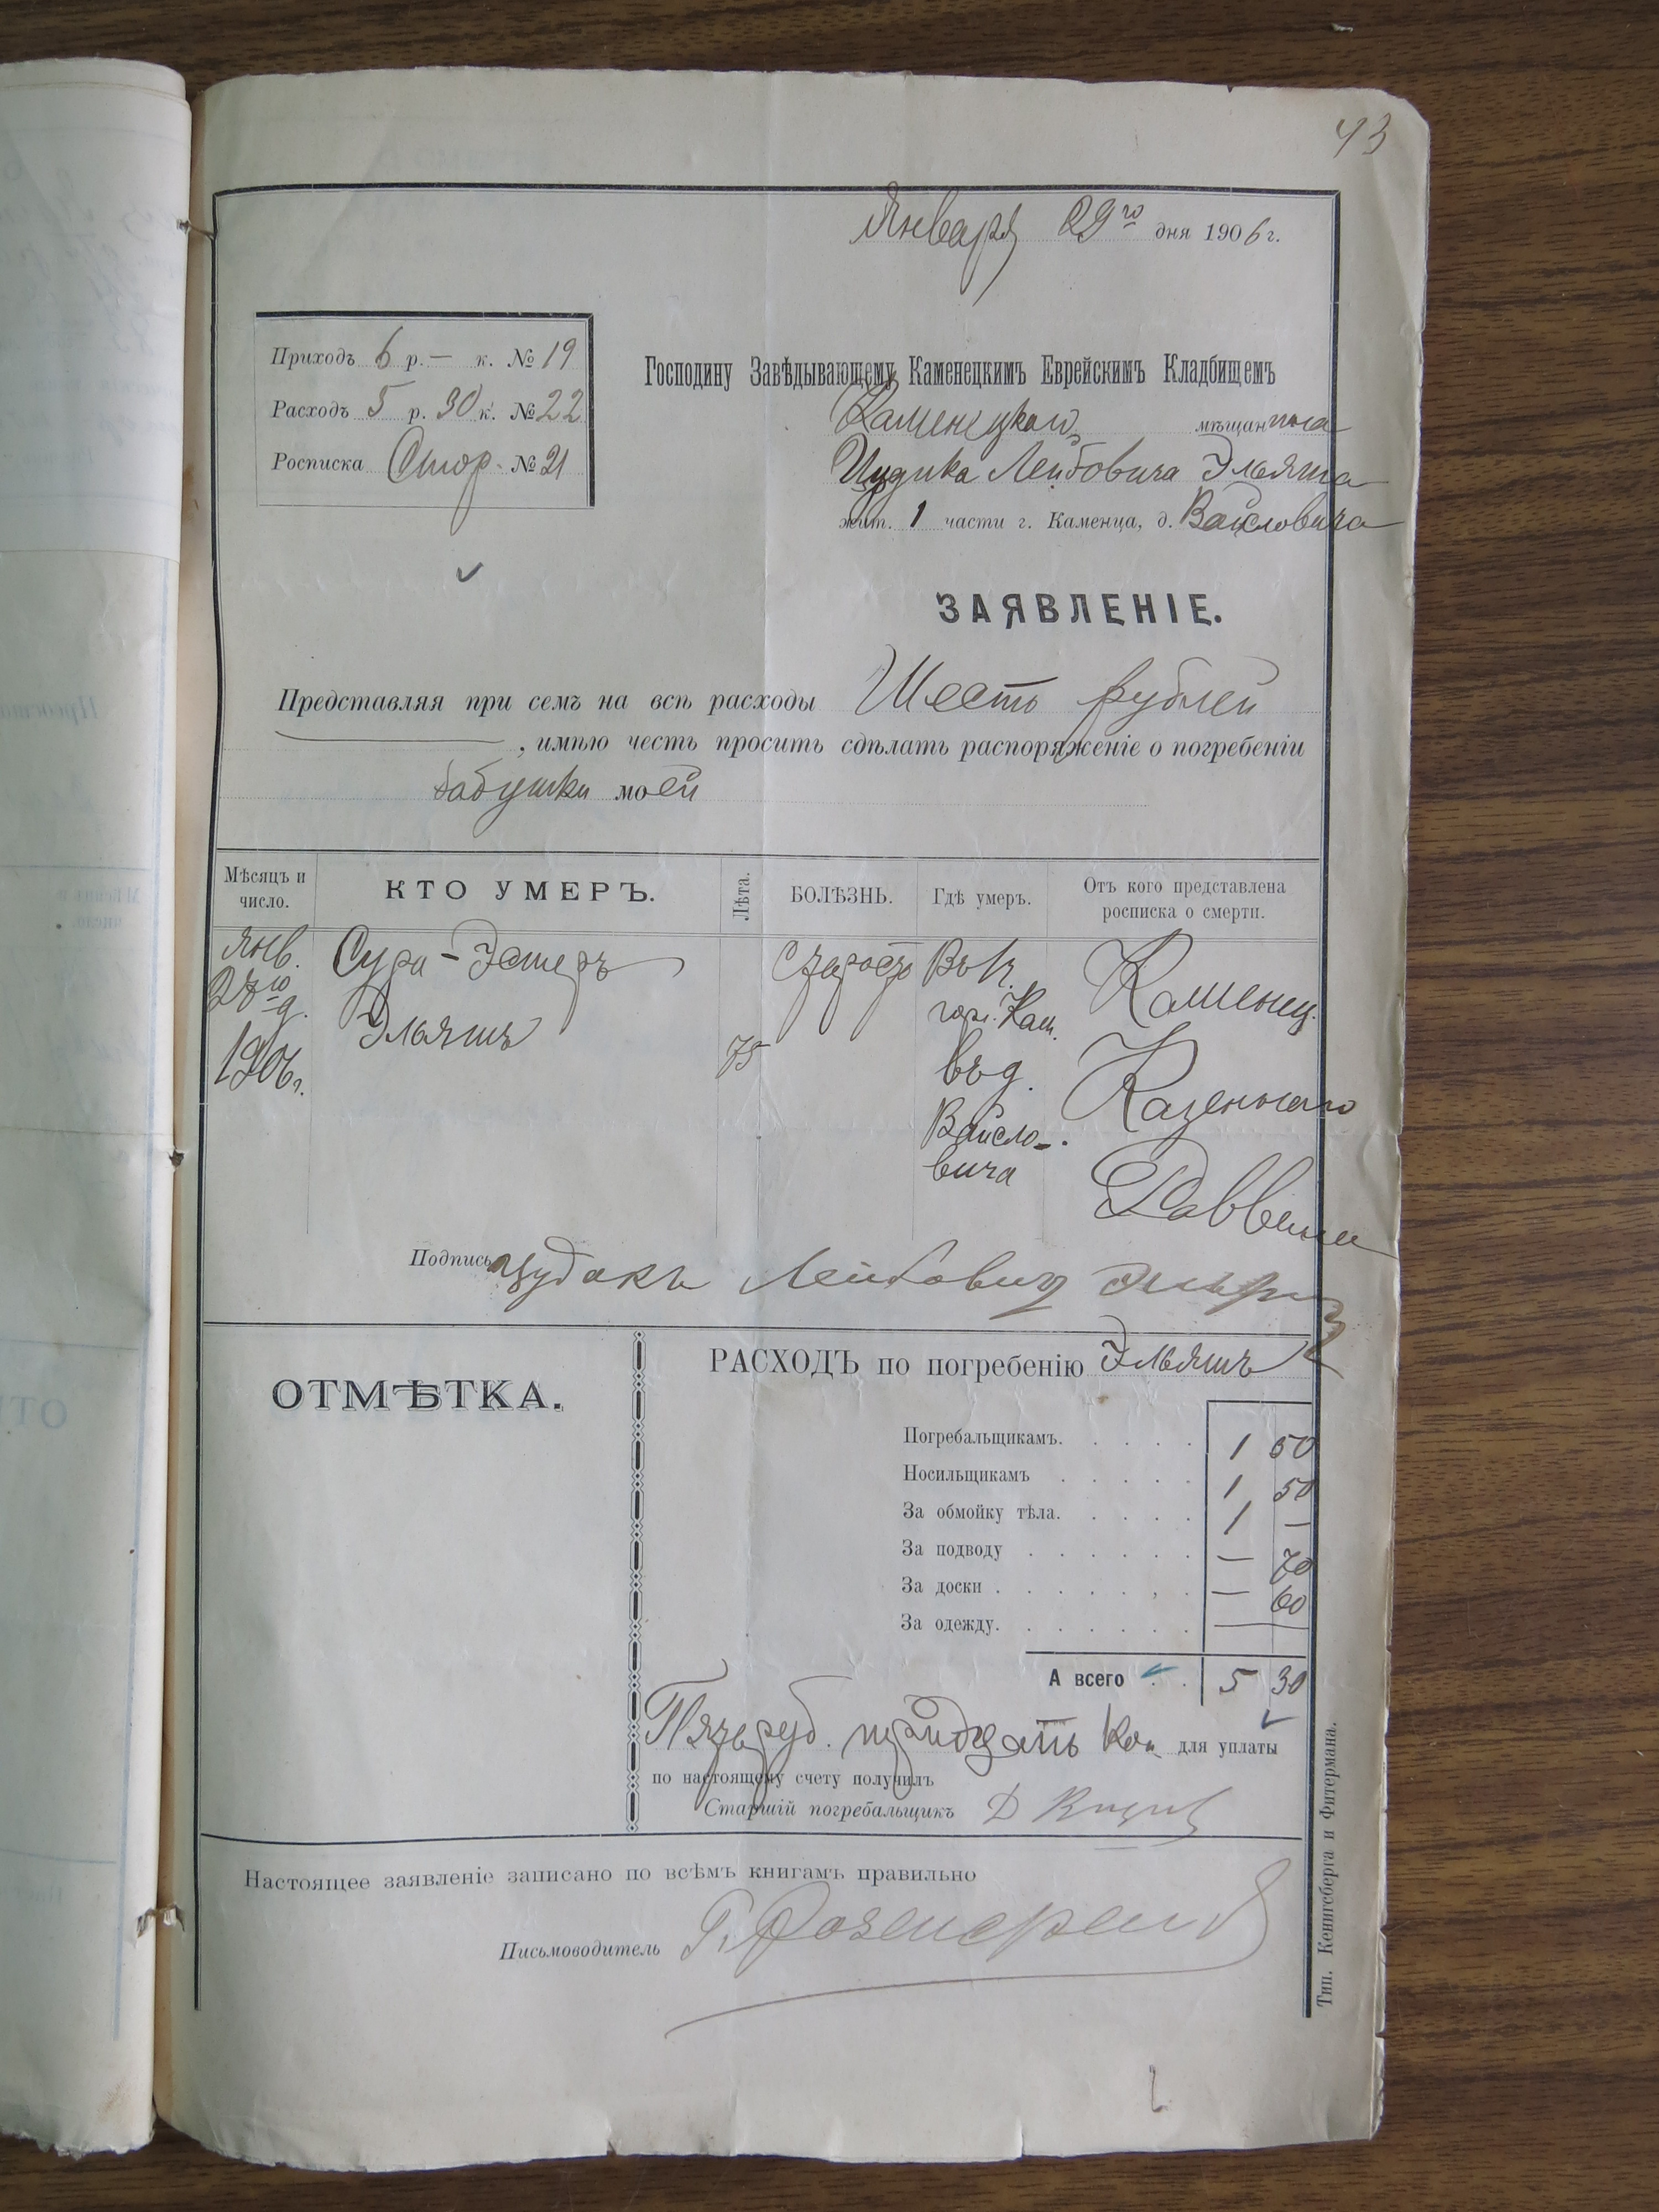 43
Января 29го дня 1906 г.
Приходъ 6 р. — к. № 19
Расходъ 5 р. 30 к. № 22
Росписка Стор. № 21
Господину Завѣдывающему Каменецкимъ Еврейскимъ Кладбищемъ
Каменецкаго мѣщанина
Цудика Лейбовича Эльяша
жит. 1 части г. Каменца, д. Вайсловича
ЗАЯВЛЕНІЕ.
Представляя при семъ на всѣ расходы Шесть рублей
, имѣю честь просить сдѣлать распоряженіе о погребеніи
бабушки моей
Мѣсяцъ и число. КТО УМЕРЪ. Лѣта. БОЛѢЗНЬ. Гдѣ умеръ. Отъ кого представлена росписка о смерти.
Янв. Сура-Эстеръ старость Въ Каменец.
го д. Эльяшъ 75 гор. Кам. Казеннаго
1906 г. въ д. Раввина
Вайсло-
вича
Подпись Цудикъ Лейбович
ОТМѢТКА.
РАСХОДЪ по погребенію Эльяшъ
Погребальщикамъ. 1 50
Носильщикамъ 1 50
За обмойку тѣла. 1 —
За подводу — 70
За доски — 60
За одежду. —
А всего 5 30
Пять руб. тридцать коп для уплаты
по настоящему счету получилъ
Старшій погребальщикъ Д
Настоящее заявленіе записано по всѣмъ книгамъ правильно
Письмоводитель Г.
Тип. Кенигсберга и Фитермана.